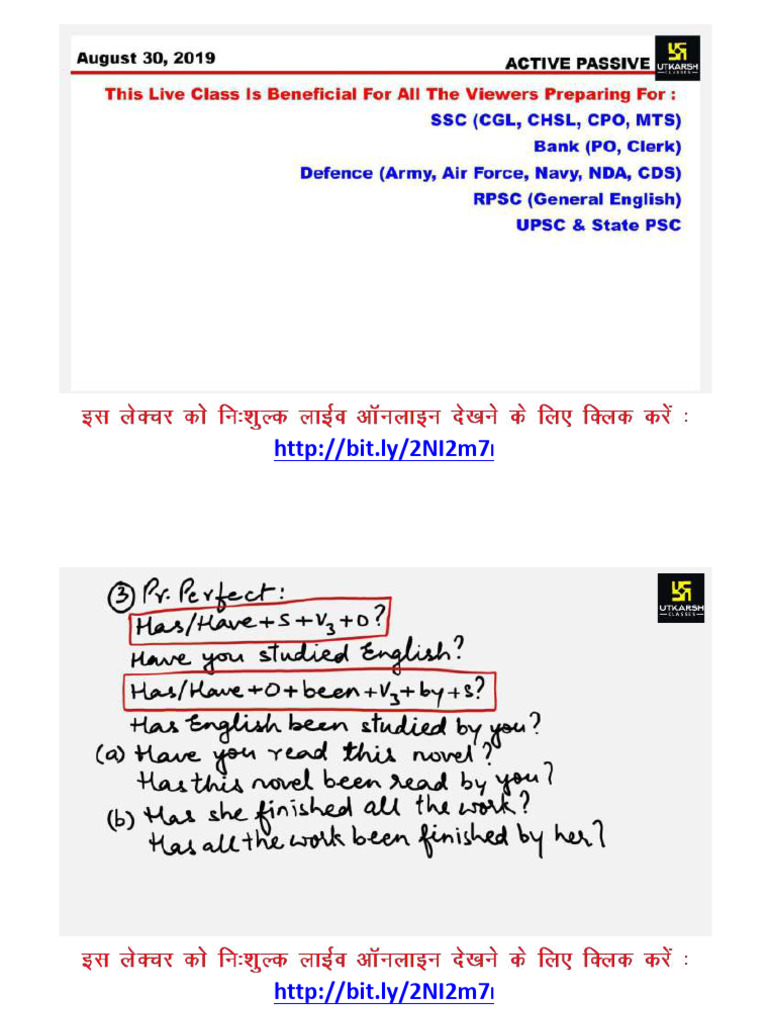 August 30, 2019
ACTIVE PASSIVE
UTKARSH
CLASSES
This Live Class Is Beneficial For All The Viewers Preparing For :
SSC (CGL, CHSL, CPO, MTS)
Bank (PO, Clerk)
Defence (Army, Air Force, Navy, NDA, CDS)
RPSC (General English)
UPSC & State PSC
इस लेक्चर को निःशुल्क लाईव ऑनलाइन देखने के लिए क्लिक करें :
http://bit.ly/2NI2m7ı
③ Pr. Perfect:
UTKARSH
CLASSES
Has/Have+S+V₃+O?
Have you studied English?
Has/Have+O+been+V₃+by+S?
Has English been studied by you?
(a) Have you read this novel?
Has this novel been read by you?
(b) Has she finished all the work?
Has all the work been finished by her?
इस लेक्चर को निःशुल्क लाईव ऑनलाइन देखने के लिए क्लिक करें :
http://bit.ly/2NI2m7ı